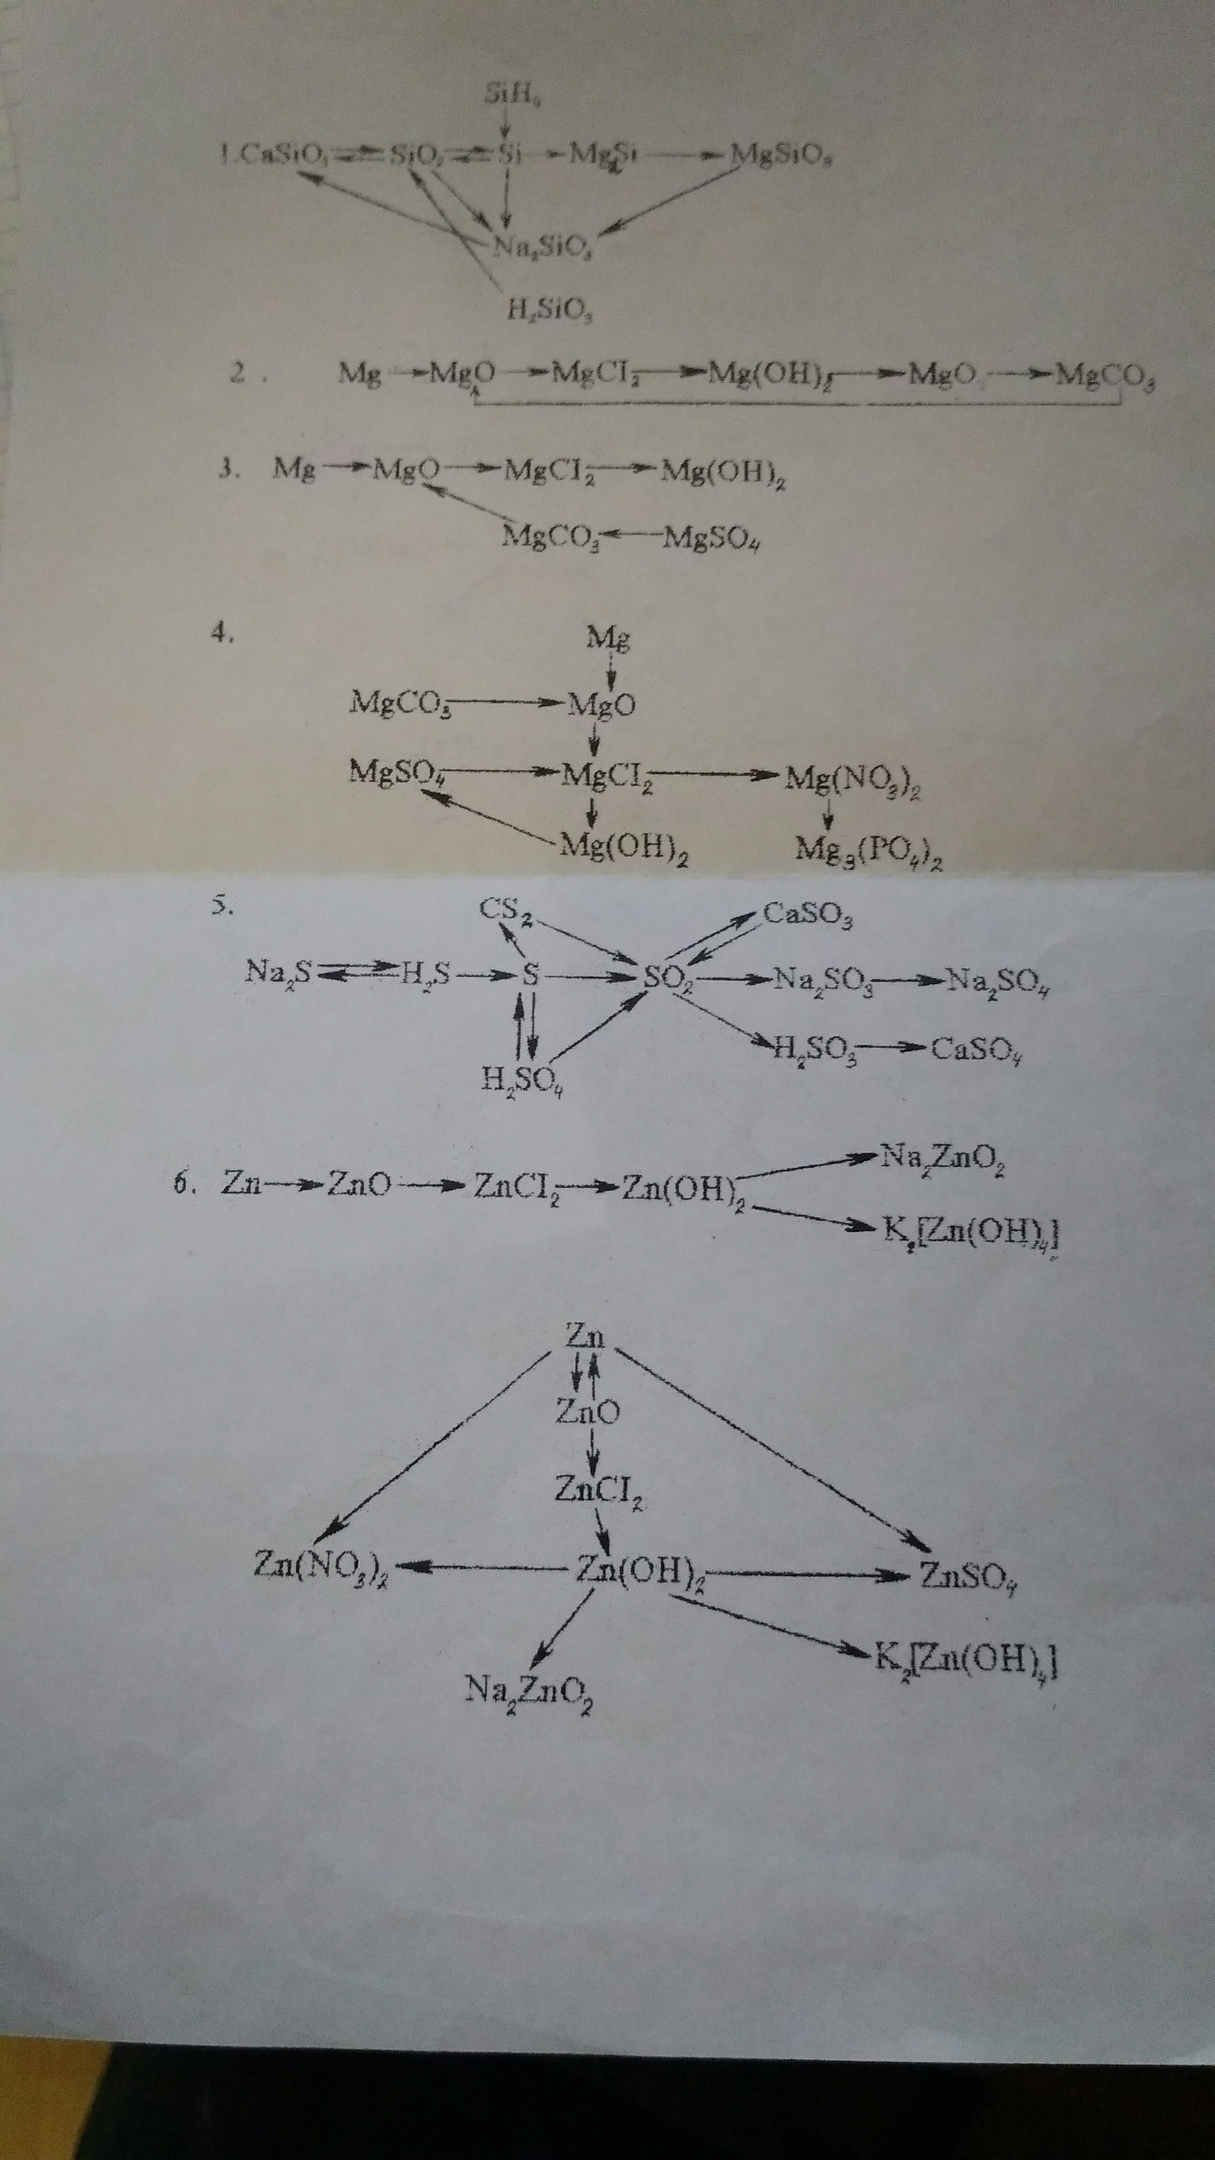 SiH₄
1. CaSiO₃ ⇄ SiO₂ ⇄ Si → Mg₂Si → MgSiO₃
Na₂SiO₃
H₂SiO₃
2. Mg → MgO → MgCI₂ → Mg(OH)₂ → MgO → MgCO₃
3. Mg → MgO → MgCI₂ → Mg(OH)₂
MgCO₃ ← MgSO₄
4.
Mg
MgCO₃ → MgO
MgSO₄ → MgCI₂ → Mg(NO₃)₂
Mg(OH)₂ Mg₃(PO₄)₂
5.
CS₂ CaSO₃
Na₂S ⇄ H₂S → S → SO₂ → Na₂SO₃ → Na₂SO₄
H₂SO₃ → CaSO₄
H₂SO₄
Na₂ZnO₂
6. Zn → ZnO → ZnCI₂ → Zn(OH)₂
K₂[Zn(OH)₄]
Zn
ZnO
ZnCI₂
Zn(NO₃)₂ ← Zn(OH)₂ → ZnSO₄
K₂[Zn(OH)₄]
Na₂ZnO₂